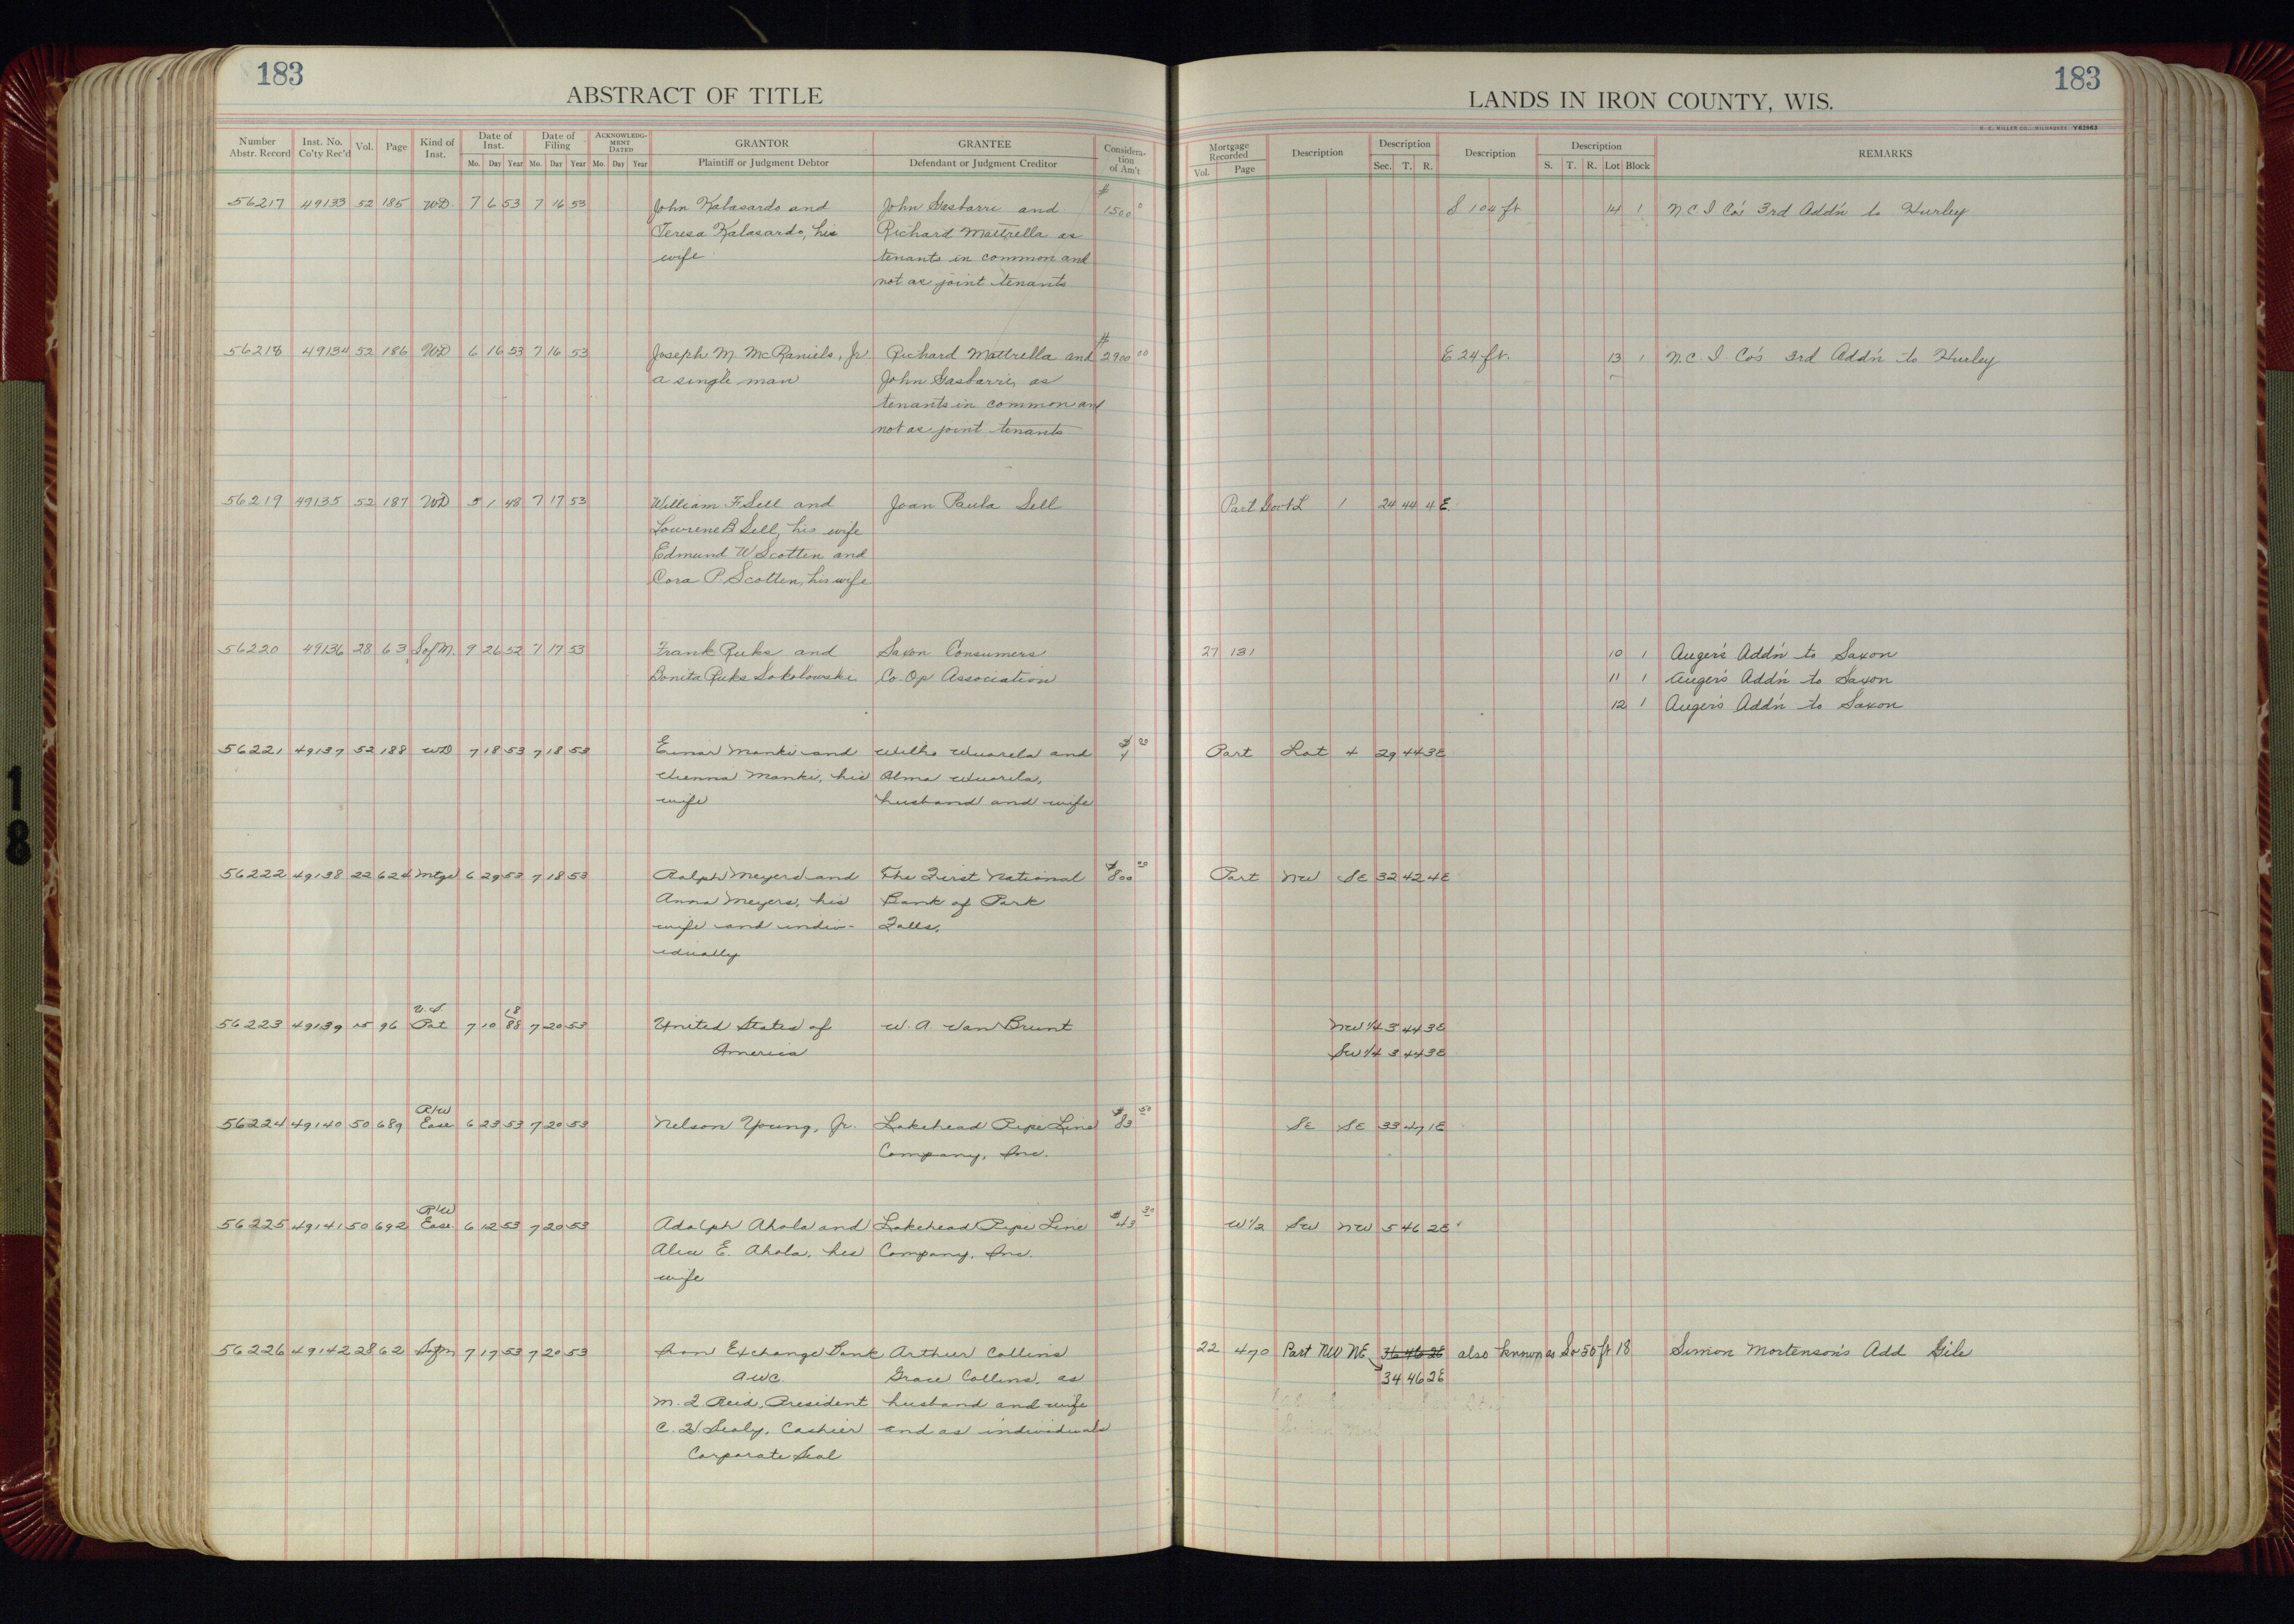 183
ABSTRACT OF TITLE
Number Abstr. Record Inst. No. Co'ty Rec'd Vol. Page Kind of Inst. Date of Inst. Date of Filing ACKNOWLEDG-MENT DATED GRANTOR GRANTEE Considera-tion of Am't
Mo. Day Year Mo. Day Year Mo. Day Year Plaintiff or Judgment Debtor Defendant or Judgment Creditor
56217 49133 52 185 WD 7 6 53 7 16 53 John Kalasardo and John Gasbarri and $1500
Teresa Kalasardo, his Richard Mattrella as
wife tenants in common and
not as joint tenants
56218 49134 52 186 WD 6 16 53 7 16 53 Joseph M. McRaniels, Jr. Richard Mattrella and $2900 00
a single man John Gasbarri, as
tenants in common and
not as joint tenants
56219 49135 52 187 WD 5 1 48 7 17 53 William F. Sell and Joan Paula Sell
Lowrene B Sell, his wife
Edmund W Scotten and
Cora P. Scotten, his wife
56220 49136 28 63 S of M. 9 26 52 7 17 53 Frank Ruks and Saxon Consumers
Bonita Ruks Sokolowski Co-Op Association
56221 49137 52 188 WD 7 18 53 7 18 53 Einar Manki and Wilho Wuarela and $1 00
Vienna Manki, his Alma Wuarela,
wife husband and wife
56222 49138 22 624 Mtge 6 29 53 7 18 53 Ralph Meyers and The First National $800 00
Anna Meyers, his Bank of Park
wife and indiv- Falls.
idually
56223 49139 15 96 U.S. Pat 7 10 1888 7 20 53 United States of W. A. Van Brunt
America
56224 49140 50 689 R/W Ease 6 23 53 7 20 53 Nelson Young, Jr. Lakehead Pipe Line $83 50
Company, Inc.
56225 49141 50 692 R/W Ease. 6 12 53 7 20 53 Adolph Ahola and Lakehead Pipe Line $43 30
Alice E. Ahola, his Company, Inc.
wife
56226 49142 28 62 S of M 7 17 53 7 20 53 Iron Exchange Bank Arthur Collins
Grace Collins, as
M. J. Reid, President husband and wife
Cashier and as individuals
Corporate Seal
183
LANDS IN IRON COUNTY, WIS.
H. C. MILLER CO. MILWAUKEE Y62963
Mortgage Recorded Description Description Description Description REMARKS
Vol. Page Sec. T. R. S. T. R. Lot Block
S 104 ft 14 1 N.C.I. Co's 3rd Add'n to Hurley
E 24 ft. 13 1 N.C.I. Co's 3rd Add'n to Hurley
Part Gov't L 1 24 44 4 E.
27 131 10 1 Auger's Add'n to Saxon
11 1 Auger's Add'n to Saxon
12 1 Auger's Add'n to Saxon
Part Lot 4 29 44 3E
Part NW SE 32 42 4E
NW 1/4 3 44 3E
SW 1/4 3 44 3E
SE SE 33 47 1E
W 1/2 SW NW 5 46 2E
22 470 Part NW NE 36 46 2E also known as So 50 ft 18 Simon Mortenson's Add Gile
34 46 2E
18